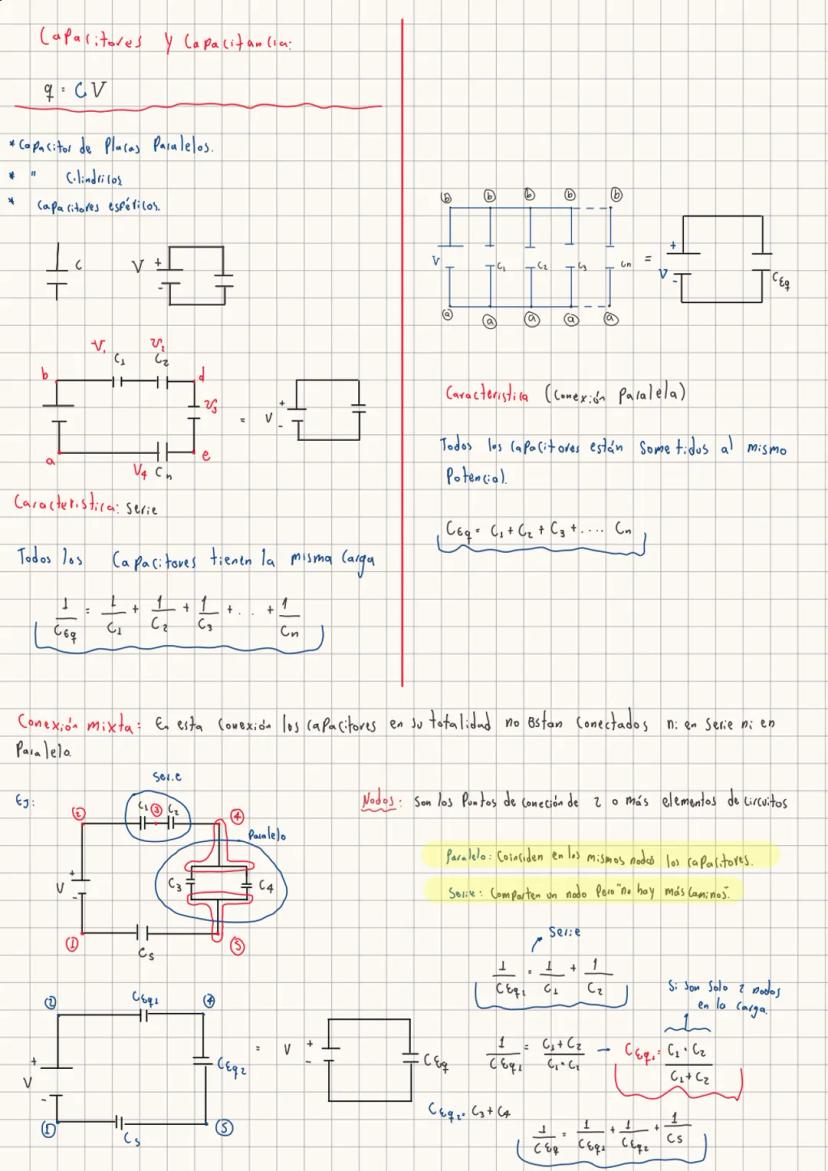 Capacitores y Capacitancia:
q = CV
* Capacitor de Placas Paralelos.
* " Cilindricos
* Capacitores esféricos.
C
V + -
V₁ V₂
C₁ C₂
b d
V₃
= V + -
a e
V₄ Cn
Caracteristica: serie
Todos los Capacitores tienen la misma carga
1/CEq = 1/C₁ + 1/C₂ + 1/C₃ + . . + 1/Cn
b b b b b
V C₁ C₂ C₃ Cn = + V - CEq
a a a a a
Caracteristica (Conexión Paralela)
Todos los capacitores están sometidus al mismo
Potencial.
CEq = C₁ + C₂ + C₃ + .... Cn
Conexión mixta: En esta conexión los capacitores en su totalidad no estan conectados ni en serie ni en
Paralelo
Ej:
Serie
2 C₁ 3 C₂ 4
Paralelo
V + - C₃ C₄
1 C5 5
Nodos: Son los Puntos de coneción de 2 o más elementos de circuitos
Paralelo: Coinciden en los mismos nodos los capacitores.
Serie: Comparten un nodo Pero "no hay más caminos".
Serie
1/CEq₁ = 1/C₁ + 1/C₂
Si son solo 2 nodos
en la carga.
1/CEq₁ = C₁+C₂/C₁·C₂ → CEq₁ = C₁·C₂/C₁+C₂
CEq₂ = C₃+C₄
1/CEq = 1/CEq₁ + 1/CEq₂ + 1/C5
2 CEq₁ 4
+ V - CEq₂ = V + - CEq
1 C5 5